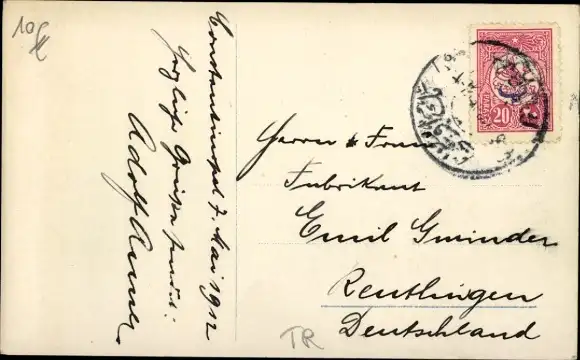 10
Constantinopel 7. Mai 1912
Herzliche Grüsse sendet:
Adolf
20 PARAS 20
Herrn & Frau
Fabrikant
Emil Gminder
Reutlingen
Deutschland
TR